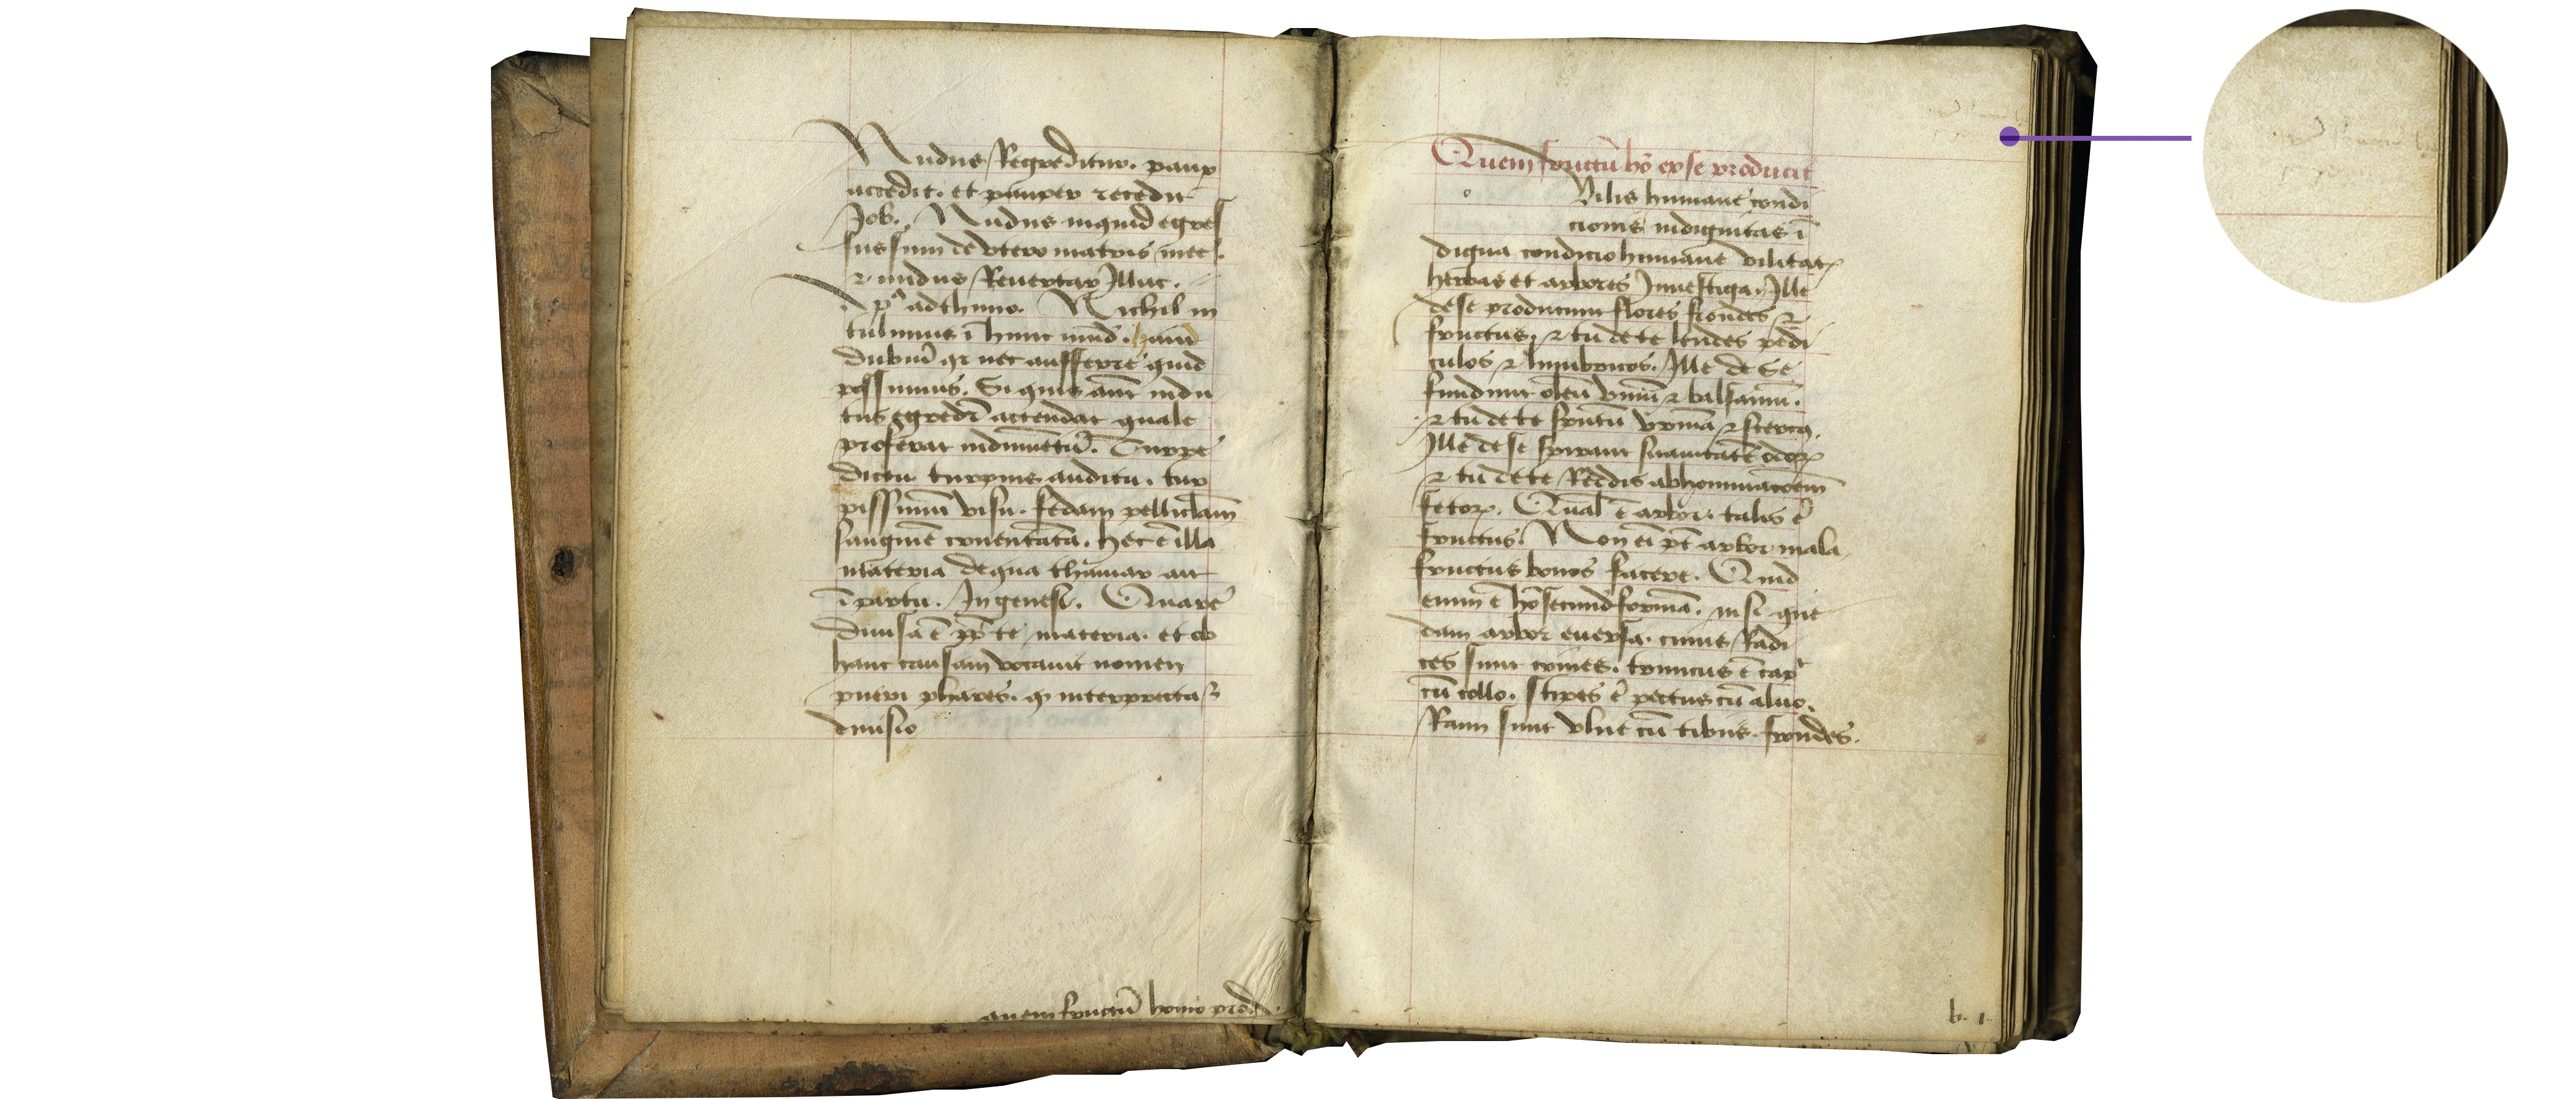 Nudus Regreditur. paup
accedit. et pauper recedit
Job. Nudus inquid egres
sus sum de vtero matris mee.
⁊ nudus Reuertar Illuc.
pª ad thimo. Nichil in
tulimus ī hunc mūd. haud
dubiū qr nec aufferre quid
possumus. Si quis aūt indu
tus egredr̄ attendat quale
proferat indumētū. Turpe
dictu turpius auditu. tur
pissimū visu. fedam pelliclam
sanguīe cruentatā. hec ē illa
materia de qua thamar ait
ī partu. In genesi. Quare
diuisa ē pp̄ te materia. et ob
hanc causam vocauit nomen
pueri phares. qd interpretat̄
diuisio
quem fructū homo prod.
Quem fructū hō ex se producit
o Vilis humane condi
cionis indignitas ī
digna condicio humane vilitatꝭ
herbas et arbores Inuestiga. Ille
de se producunt flores frondes ⁊
fructus. ⁊ tu de te lendes pedi
culos ⁊ lumbricos. Ille de se
fundunt oleū vinū ⁊ balsamū.
⁊ tu de te sputū vrinā ⁊ stercꝯ.
Ille de se spirant suauitatē odorꝭ
⁊ tu de te Reddis abhominacōem
fetorꝭ. Qual ē arbor. talis ē
fructus. Non eī pt̄ arbor mala
fructus bonos facere. Quid
enim ē hō secundū formā. nisi que
dam arbor euersa. cuius Radi
ces sunt crines. truncus ē cap
cū collo. stipes ē pectus cū aluo.
Rami sunt vlne cū tibiis. frondes.
b. 1.